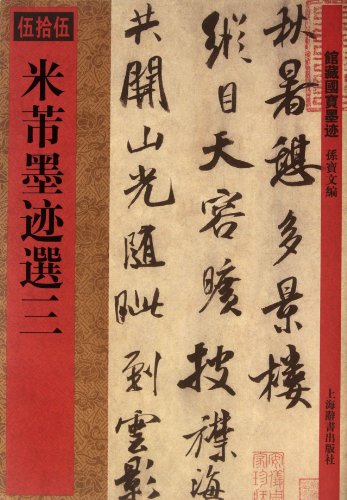 伍拾伍
米芾墨迹選三
館藏國寶墨迹
孫寶文編
秋暑憩多景樓
縱目天容曠披襟海
共開山光隨眦到雲影
上海辭書出版社